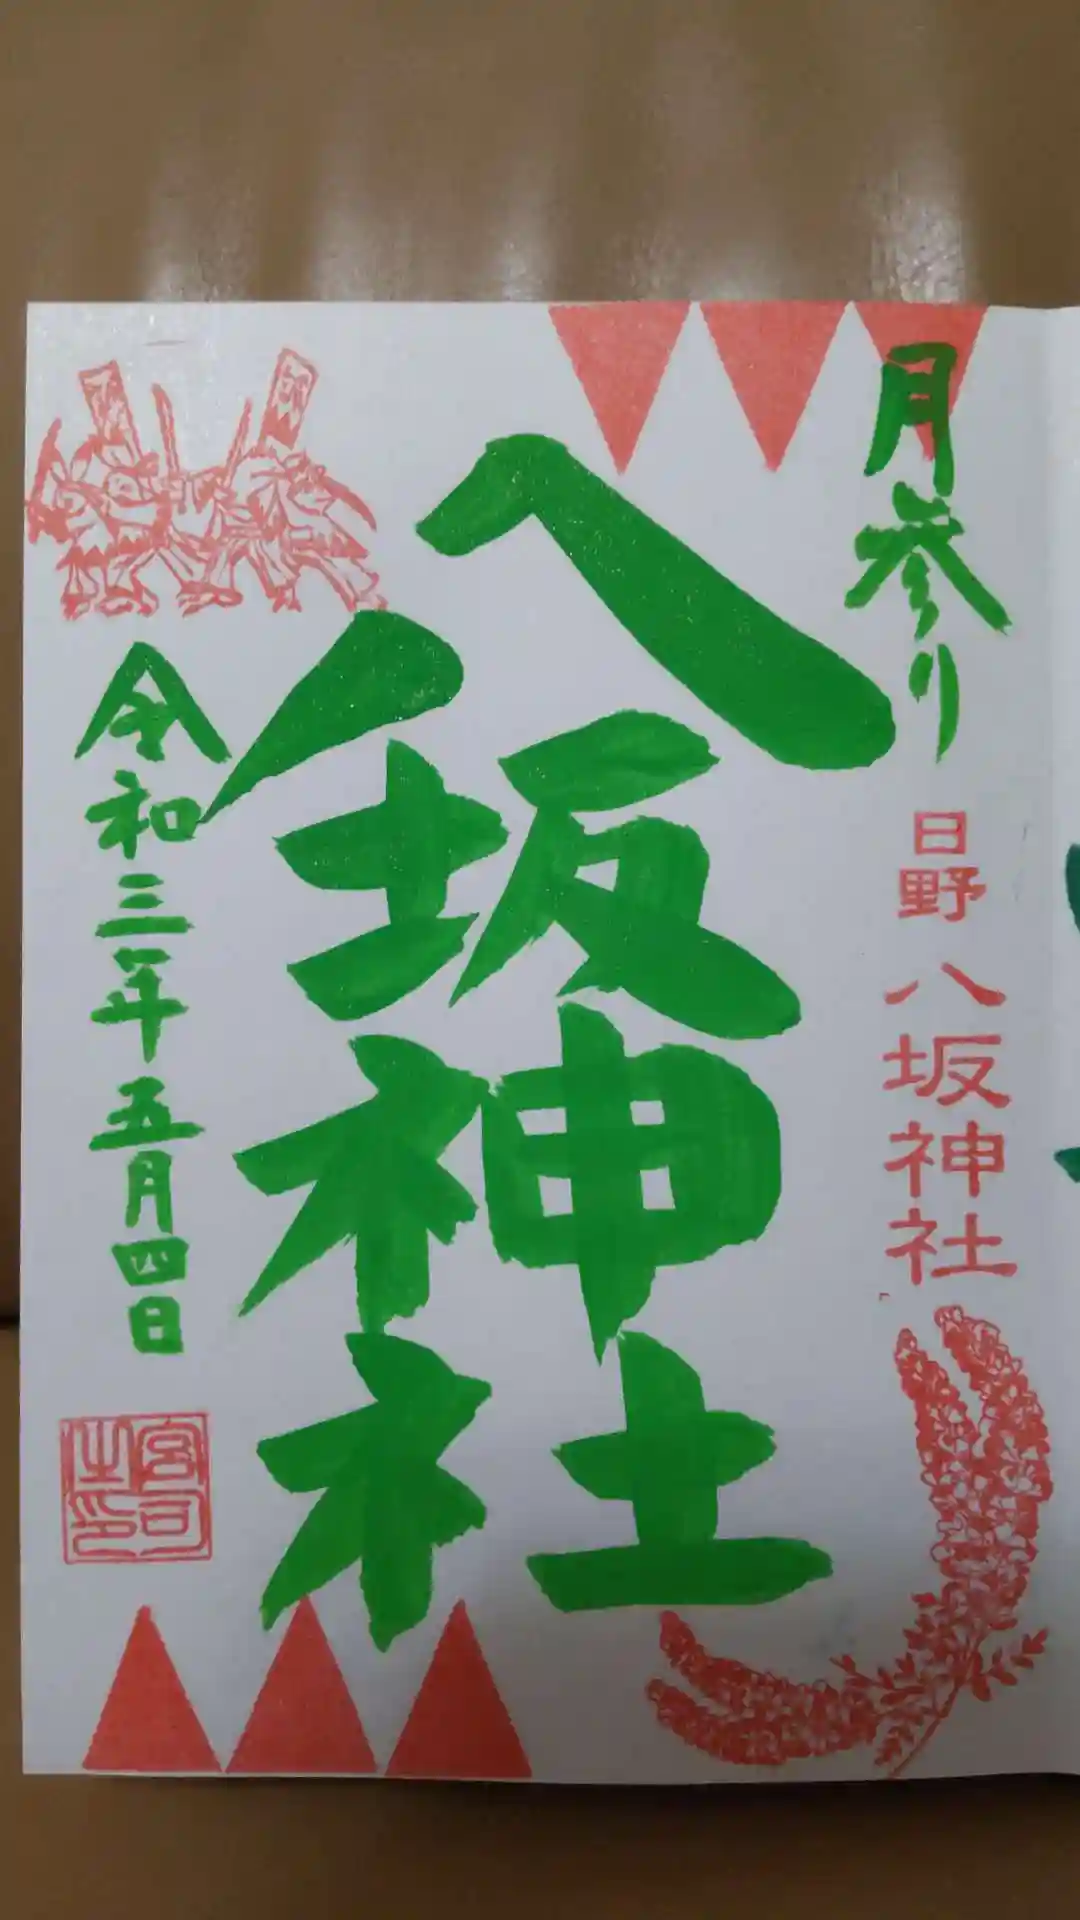 月参り
日野八坂神社
八坂神社
令和三年五月四日
宮司
之印